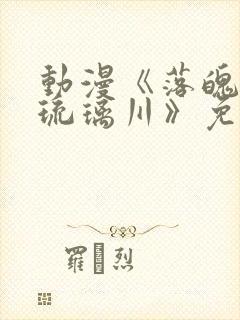 動漫《落魄
琉璃川》免
羅 烈